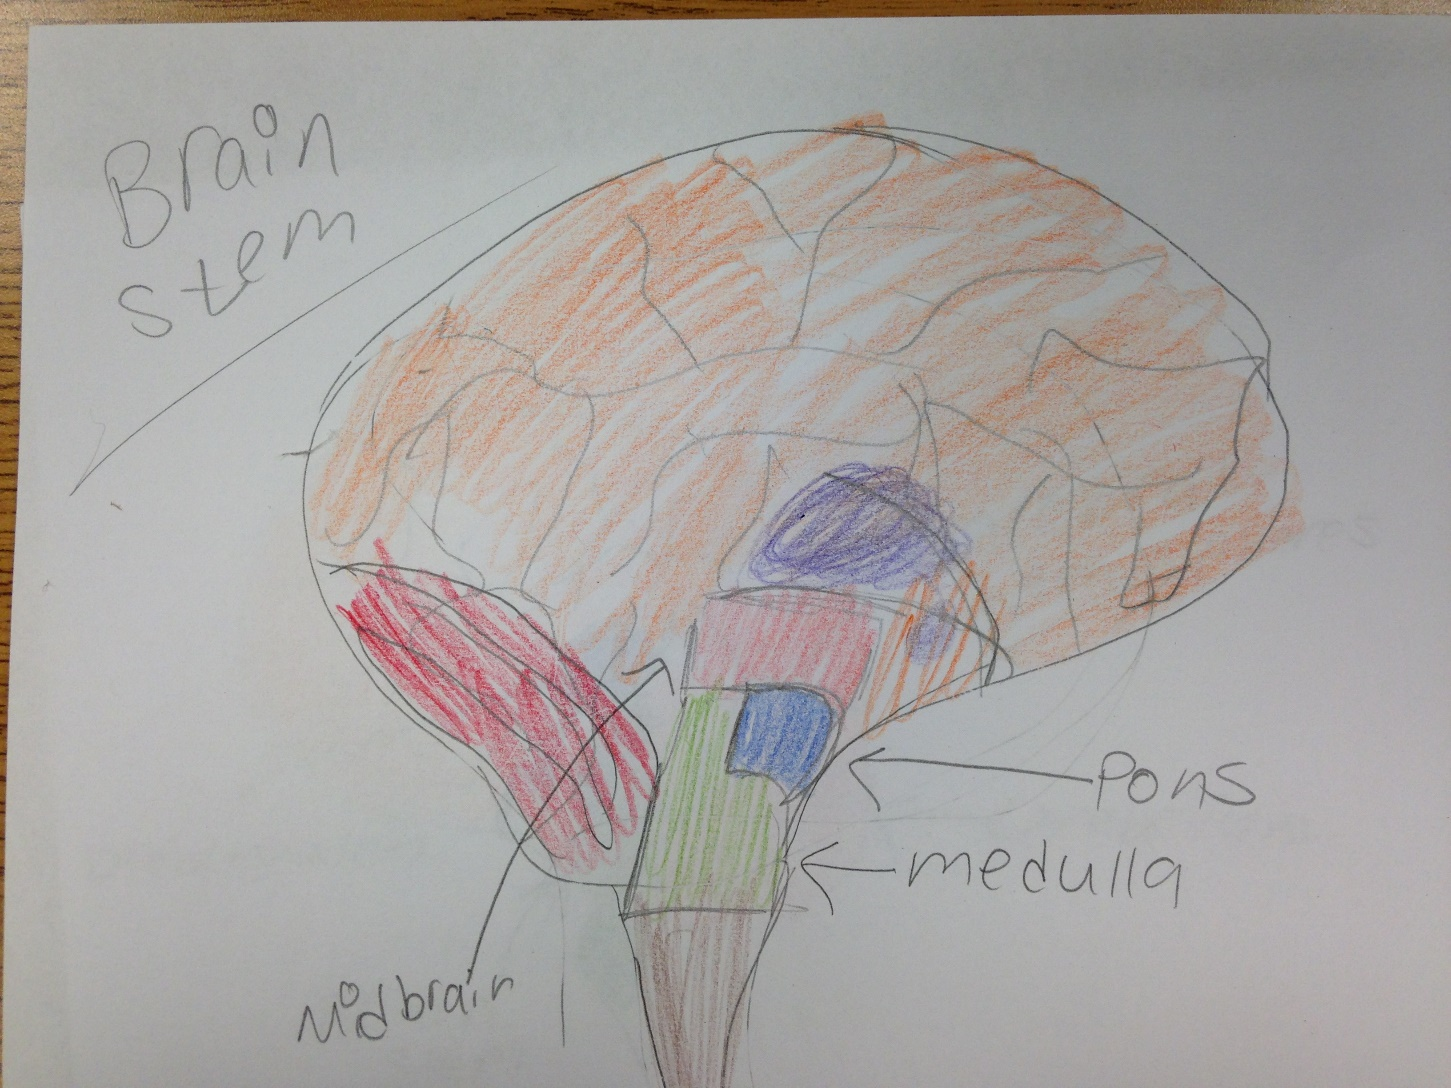 Brain
stem
Pons
medulla
Midbrain